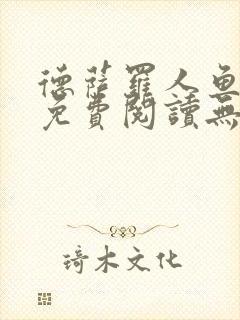 德薩羅人魚
免費閱讀無
琦木文化